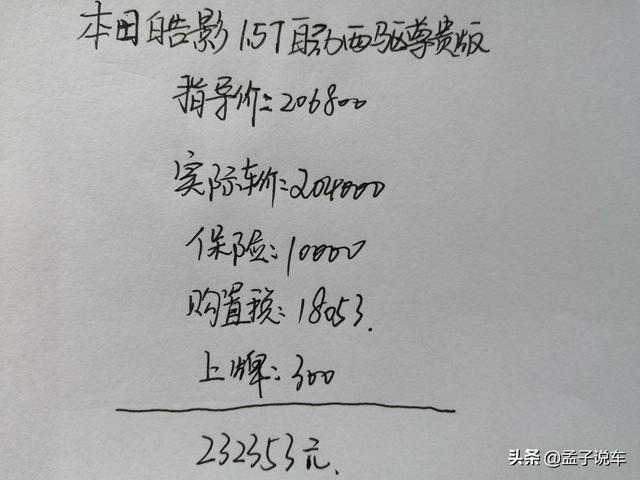 本田皓影1.5T自动两驱尊贵版
指导价:206800
实际车价:204000
保险:10000
购置税:18053.
上牌:300
232353元.
头条 @孟子说车